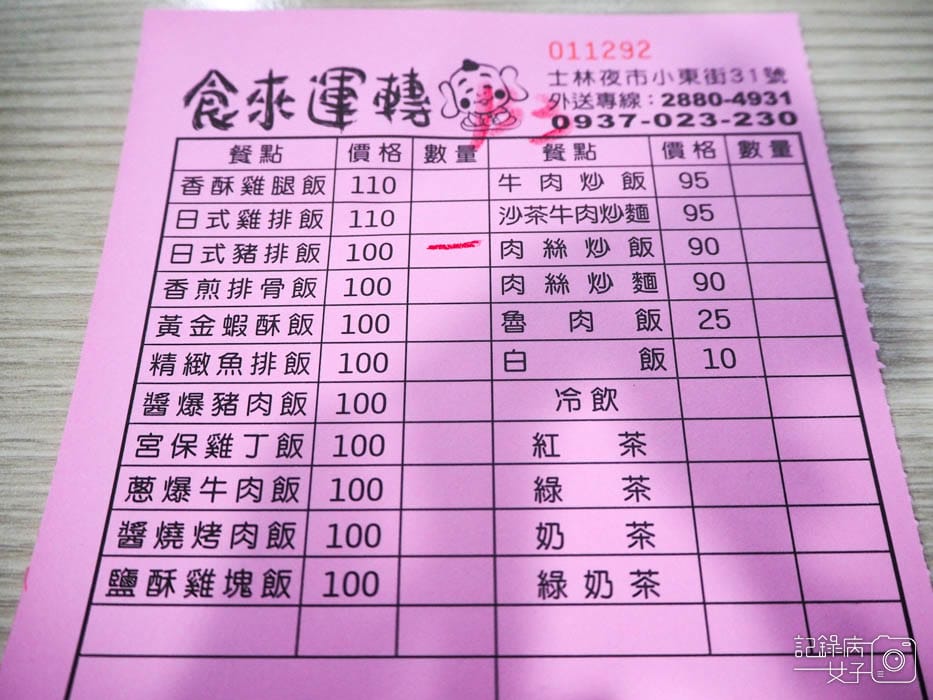 011292
食來運轉
士林夜市小東街31號
外送專線：2880-4931
0937-023-230
餐點 價格 數量 餐點 價格 數量
香酥雞腿飯 110 牛肉炒飯 95
日式雞排飯 110 沙茶牛肉炒麵 95
日式豬排飯 100 一 肉絲炒飯 90
香煎排骨飯 100 肉絲炒麵 90
黃金蝦酥飯 100 魯肉飯 25
精緻魚排飯 100 白飯 10
醬爆豬肉飯 100 冷飲
宮保雞丁飯 100 紅茶
蔥爆牛肉飯 100 綠茶
醬燒烤肉飯 100 奶茶
鹽酥雞塊飯 100 綠奶茶
記錄病
一女子